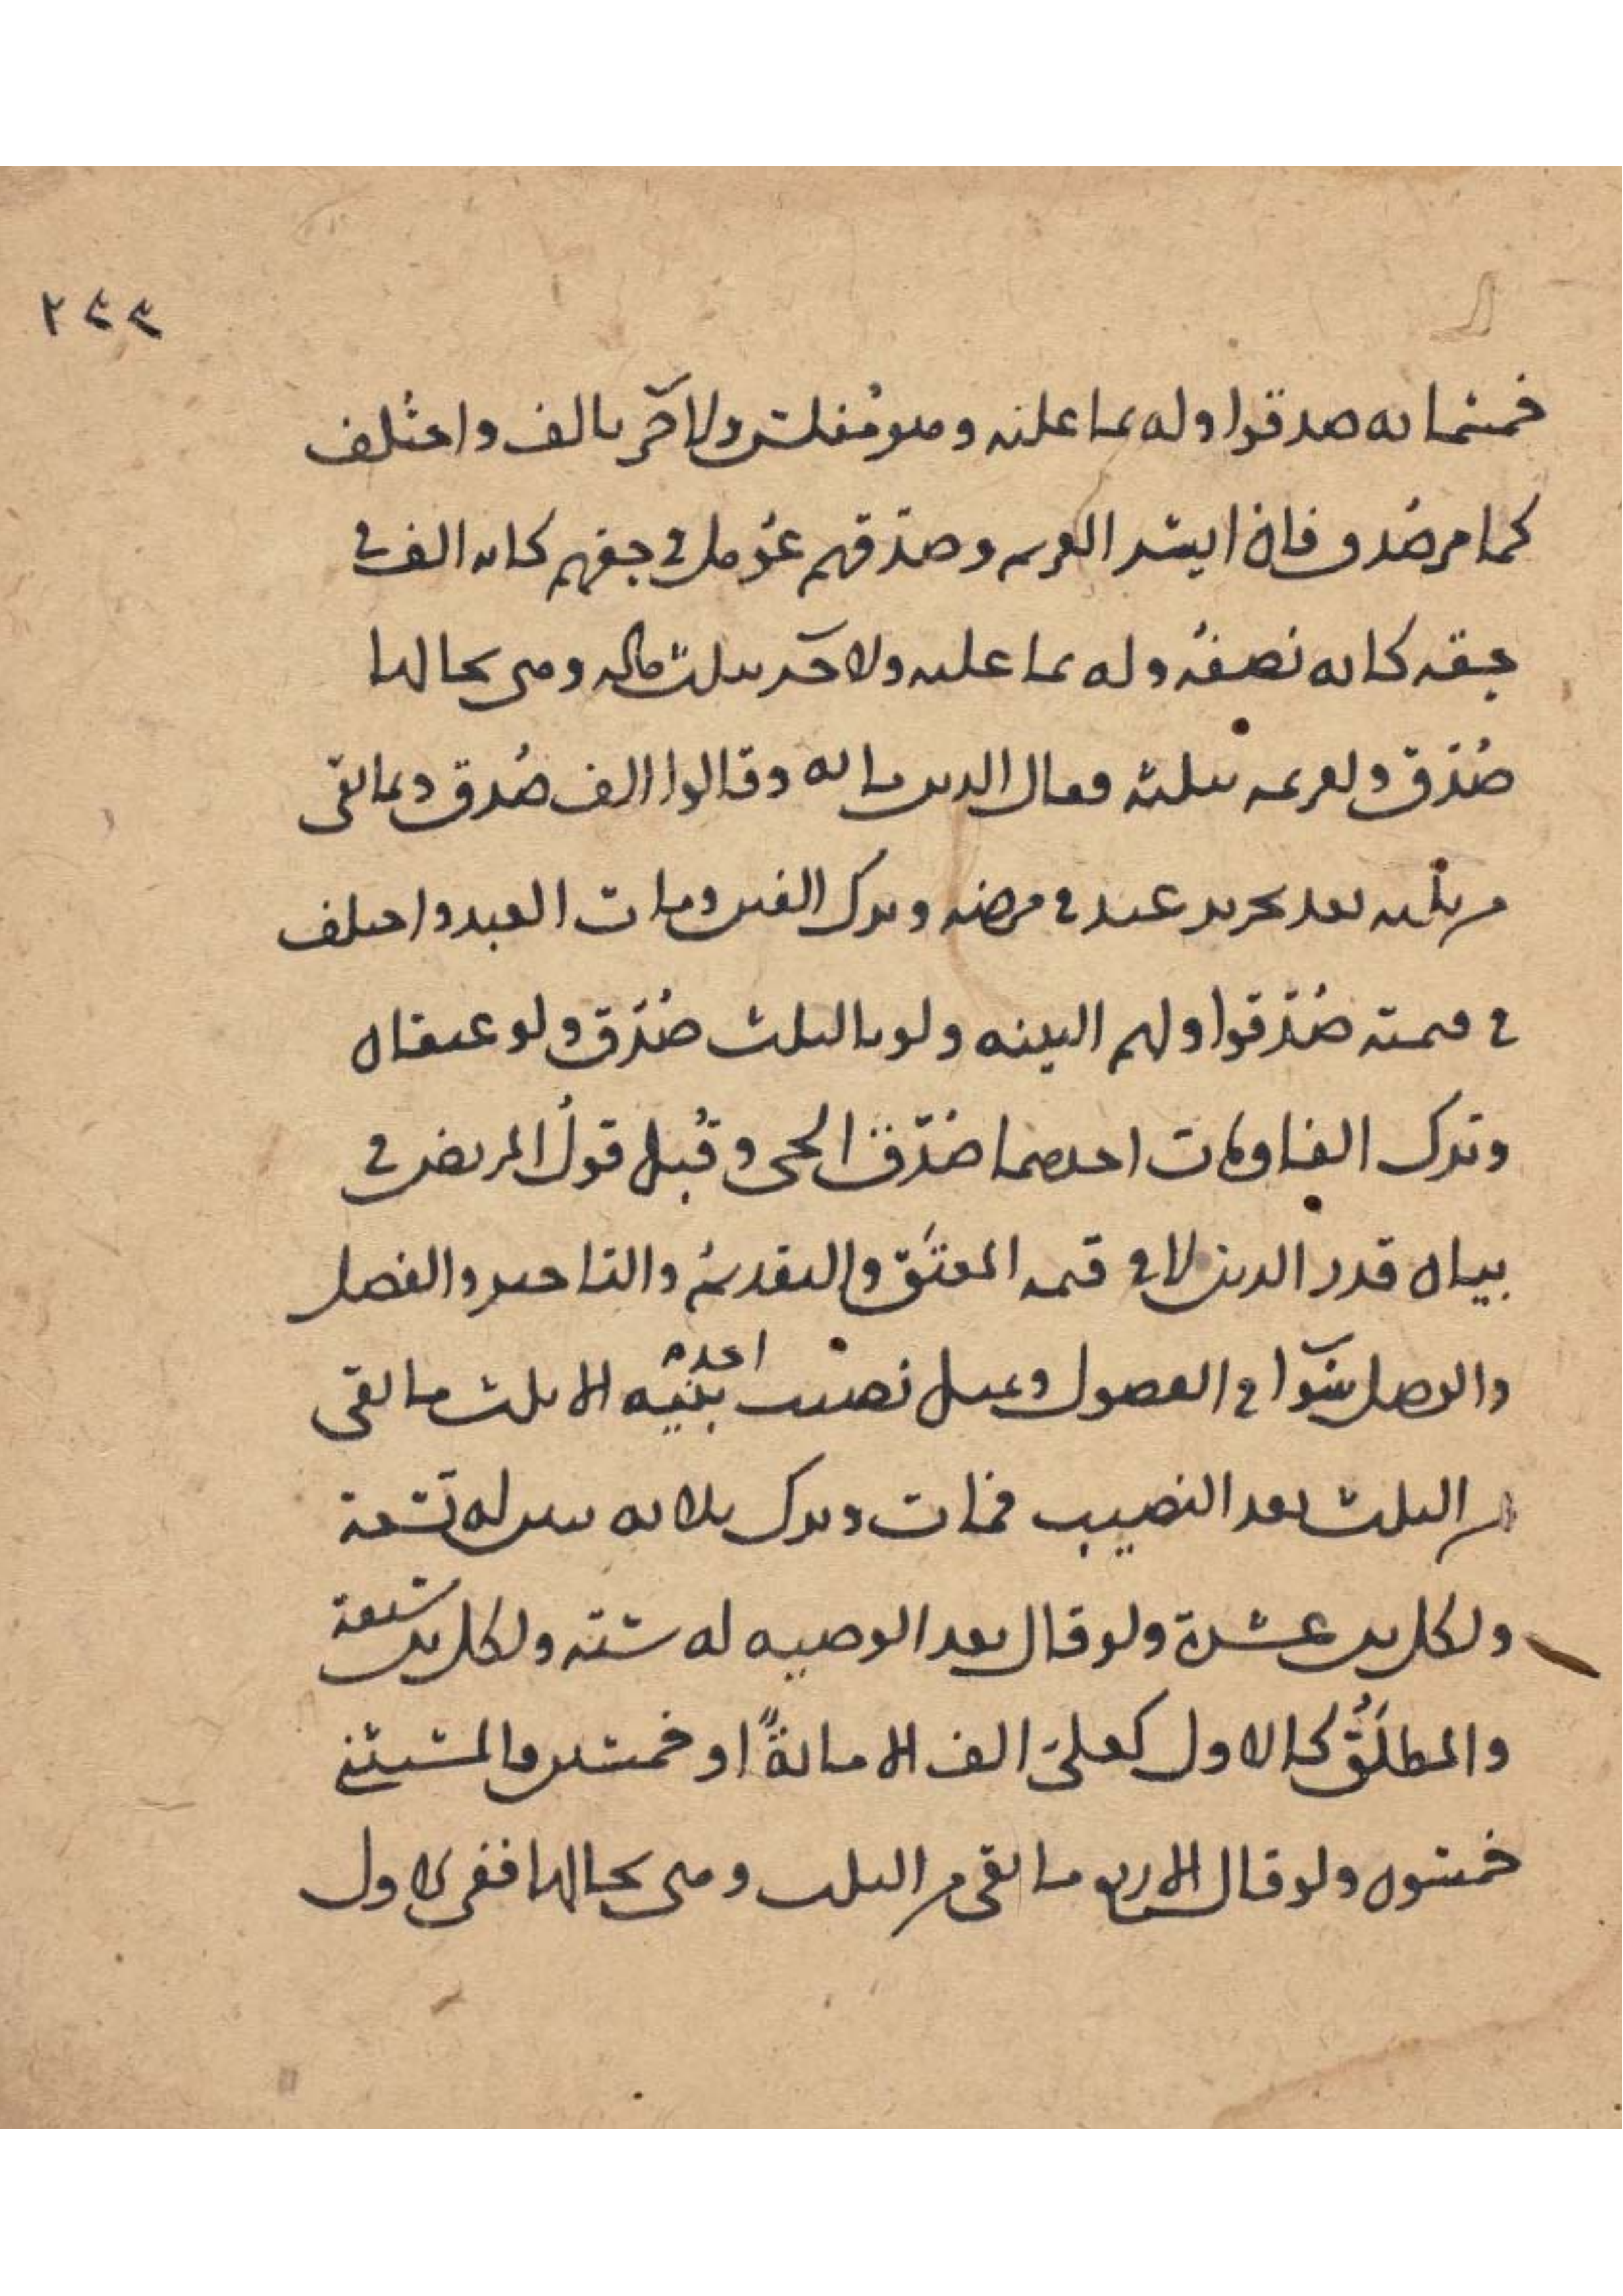 ٢٤٤
خمسمائه صدقوا وله بما عليه وهو مفلس ولآخر بالف واختلف
كما مر صدق فان ايسر الغريم وصدقهم عومل في حقهم كان الف في
حقه كانه نصفه وله بما عليه ولآخر بثلث ماله وهي بحالها
صدق ولغريمه بثلثه فقال الدين مائه وقالوا الف صدق وبما بقي
من ثلثه بعد تحرير عبد في مرضه وترك الفين ومات العبد واختلف
في قيمته صدقوا ولهم البينه ولو بالثلث صدق ولو عبدان
وترك الفا ومات احدهما صدق الحي وقبل قول المريض في
بيان قدر الدين لا في قيمه المعتق والتقديم والتاخير والفصل
والوصل سوا في الفصول وبمثل نصيب احد بنيه الا ثلث ما بقي
من الثلث بعد النصيب فمات وترك ثلاثه بنين له تسعة
ولكل ابن عشرة ولو قال بعد الوصيه له سته ولكل ابن سبعة
والمطلق كالاول كعلي الف الا مائة او خمسين والمستثنى
خمسون ولو قال الا ربع ما بقي من الثلث وهي بحالها ففي الاول